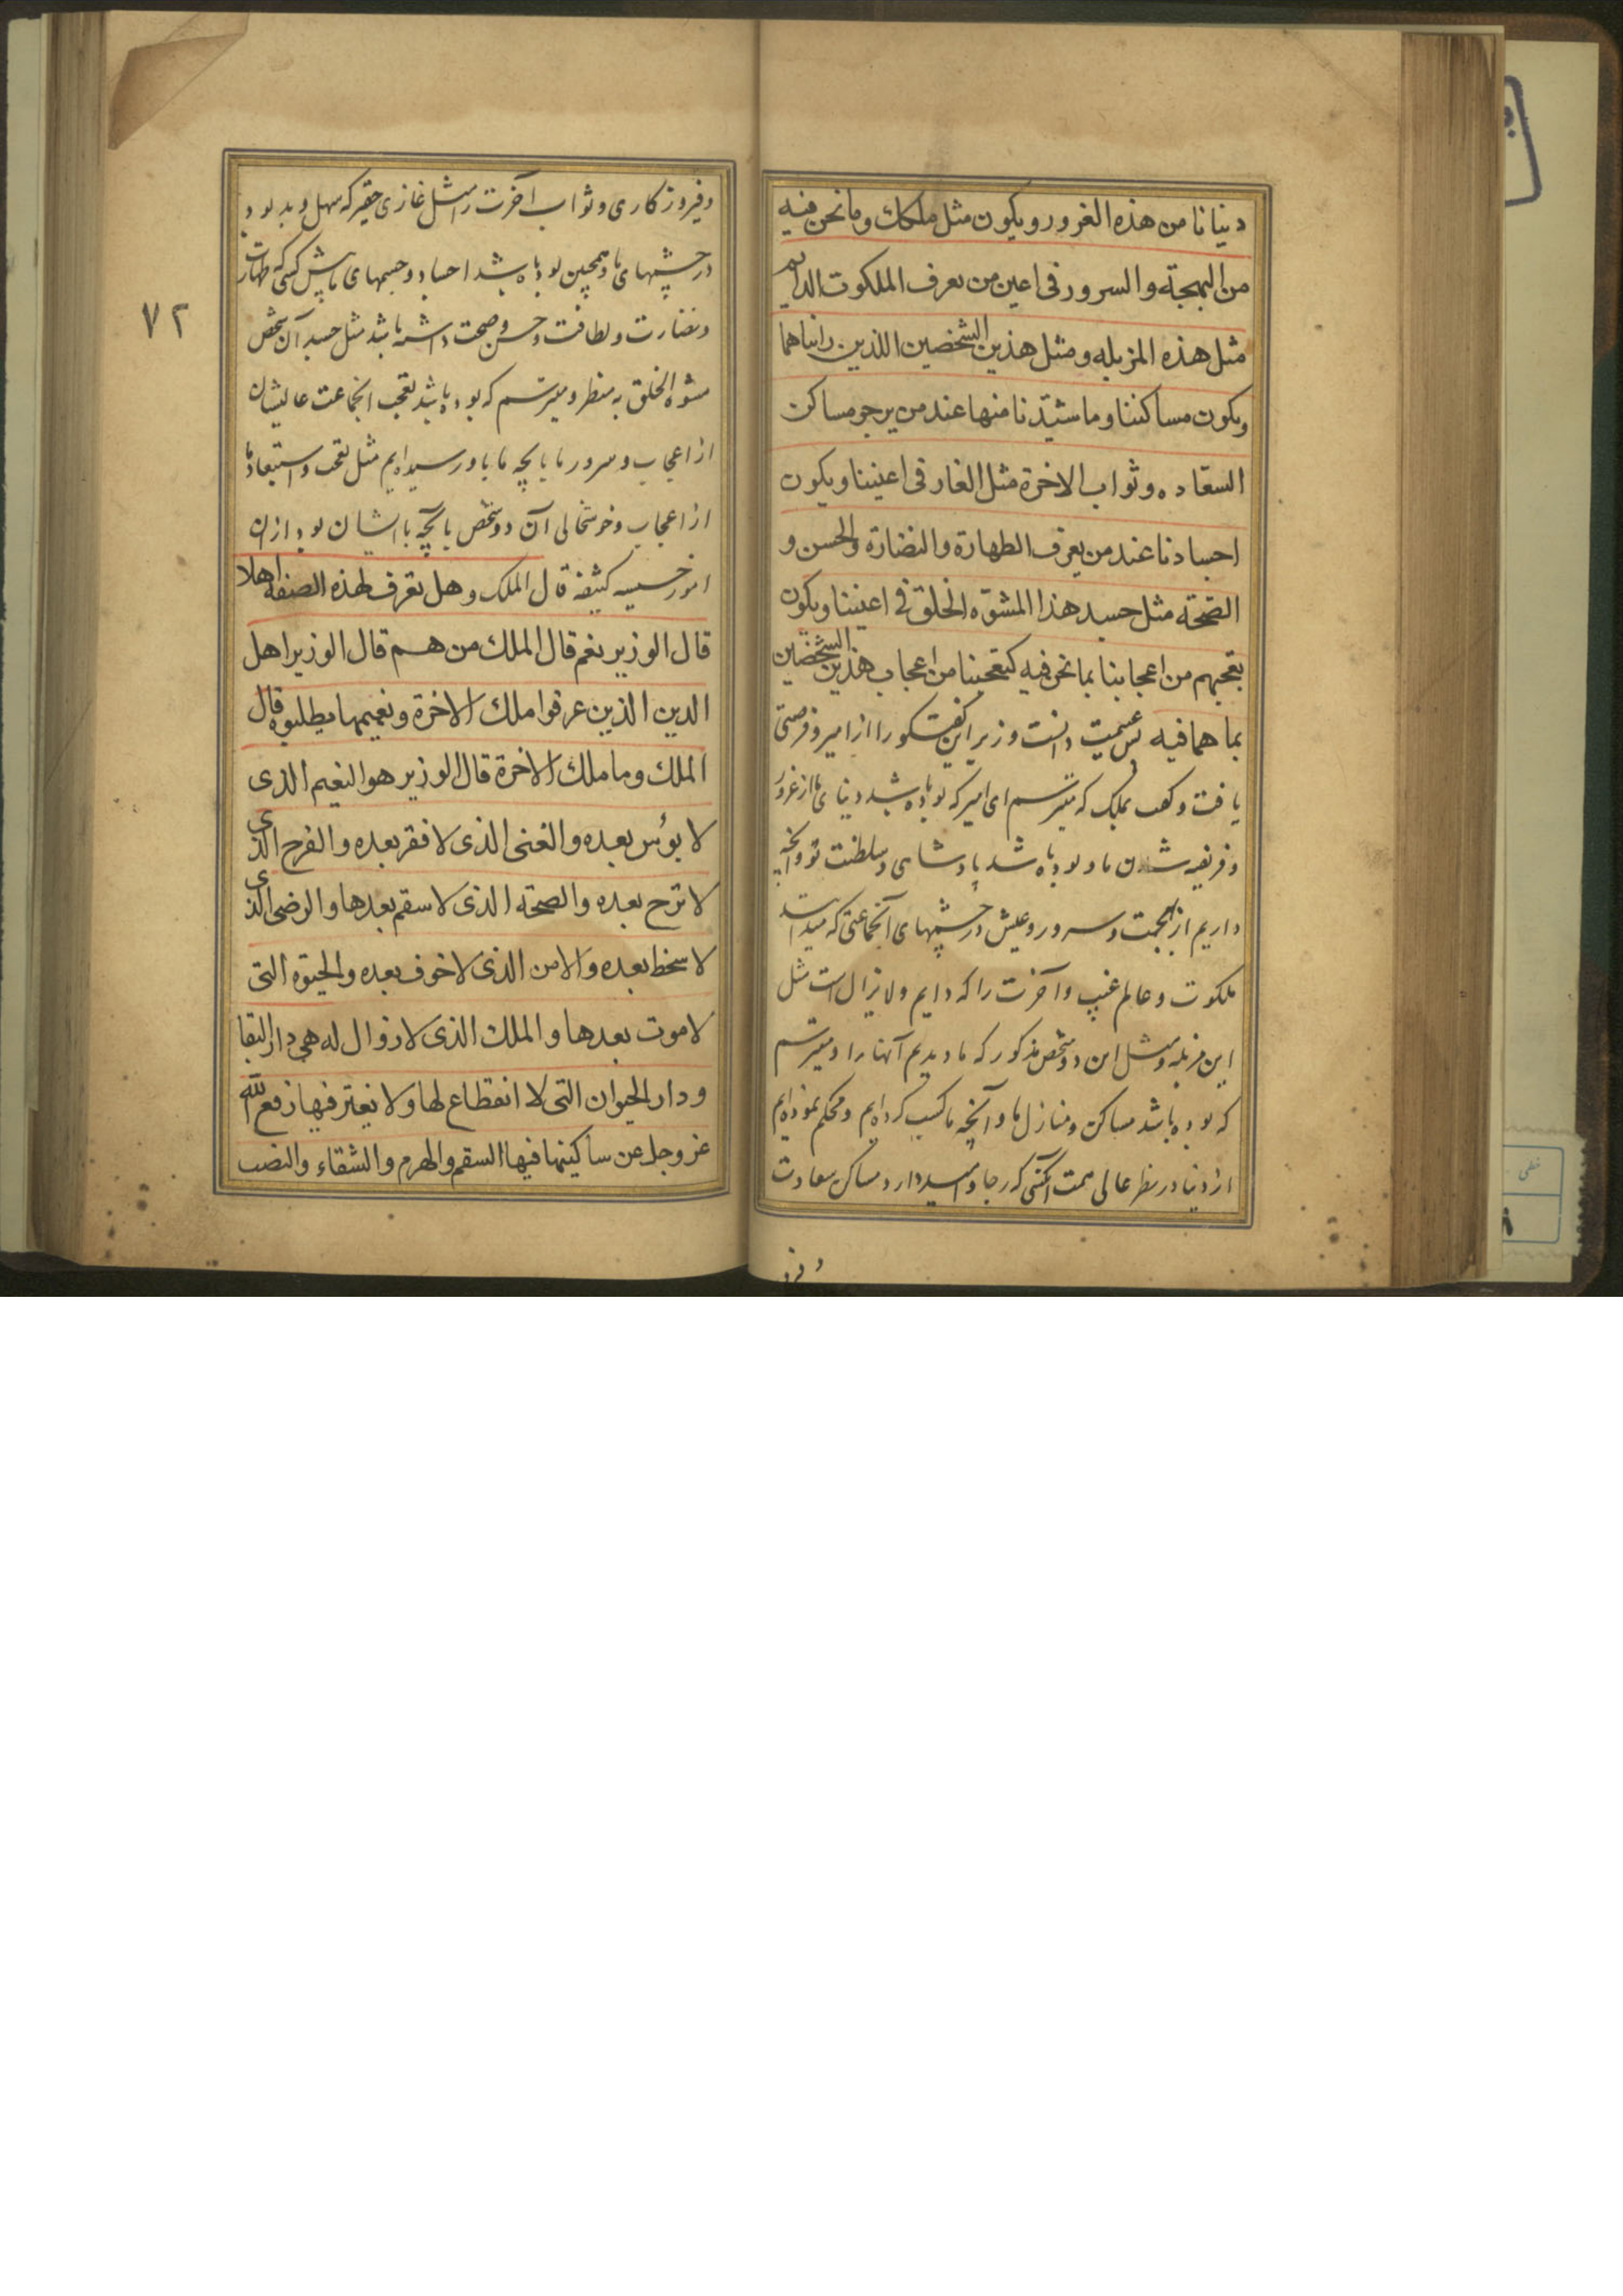 دنيانا من هذه الغرور ويكون مثل ملكك وما نحن فيه
من البهجة والسرور فى اعين من يعرف الملكوت الدايم
مثل هذه المزبله ومثل هذين الشخصين اللذين رايناهما
ويكون مساكننا وما شيّدنا منها عند من يرجو مساكن
السعاده وثواب الاخرة مثل الغار فى اعيننا ويكون
اجسادنا عند من يعرف الطهارة والنضارة والحسن و
الصحّة مثل جسد هذا المشوّه الخلق فى اعيننا ويكون
تعجبهم من اعجابنا بما نحن فيه كتعجبنا من اعجاب هذين الشخصين
بما هما فيه پس غنيمت دانست وزير اين گفتگو را از امير و فرصتى
يافت و گفت بملك كه ميترسم اى امير كه بوده باشد دنياى ما از غرور
و فريفته شدن ما و بوده باشد پادشاهى و سلطنت تو و آنچه
داريم از بهجت و سرور و عيش در چشمهاى آنجماعتى كه ميدانند
ملكوت و عالم غيب و آخرت را كه دايم و لايزال است مثل
اين مزبله و مثل اين دو شخص مذكور كه ما ديديم آنها را و ميترسم
كه بوده باشد مساكن و منازل ما و آنچه ما كسب كرده‌ايم و محكم نموده‌ايم
از دنيا در نظر عالى همت آنكسى كه رجا و اميد دارد مساكن سعادت
و فيروزكارى و ثواب آخرت را مثل غازى حقير كه سهل و بد بود
در چشمهاى ما و همچنين بوده باشد اجساد و جسمهاى ما پيش كسى كه طهارت
و نضارت و لطافت و حسن و صحت داشته باشد مثل جسد آن شخص
مشوه الخلق به منظر و ميترسم كه بوده باشد تعجب آنجماعت عاليشان
از اعجاب و سرور ما بآنچه ما باو رسيده‌ايم مثل تعجب و استبعاد ما
از اعجاب و خوشحالى آن دو شخص بآنچه با ايشان بود از ان
امور خسيسه كثيفه قال الملك وهل تعرف لهذه الصفة اهلا
قال الوزير نعم قال الملك من هم قال الوزير اهل
الدين الذين عرفوا ملك الاخرة ونعيمها فطلبوه قال
الملك وما ملك الاخرة قال الوزير هو النعيم الذى
لا بؤس بعده والغنى الذى لا فقر بعده والفرح الذى
لا ترح بعده والصحة الذى لا سقم بعدها والرضى الذى
لا سخط بعده والامن الذى لا خوف بعده والحيوة التى
لا موت بعدها والملك الذى لا زوال له هى دار البقا
ودار الحيوان التى لا انقطاع لها ولا تغير فيها رفع الله
عز وجل عن ساكنيها فيها السقم والهرم والشقاء والنصب
٧٢